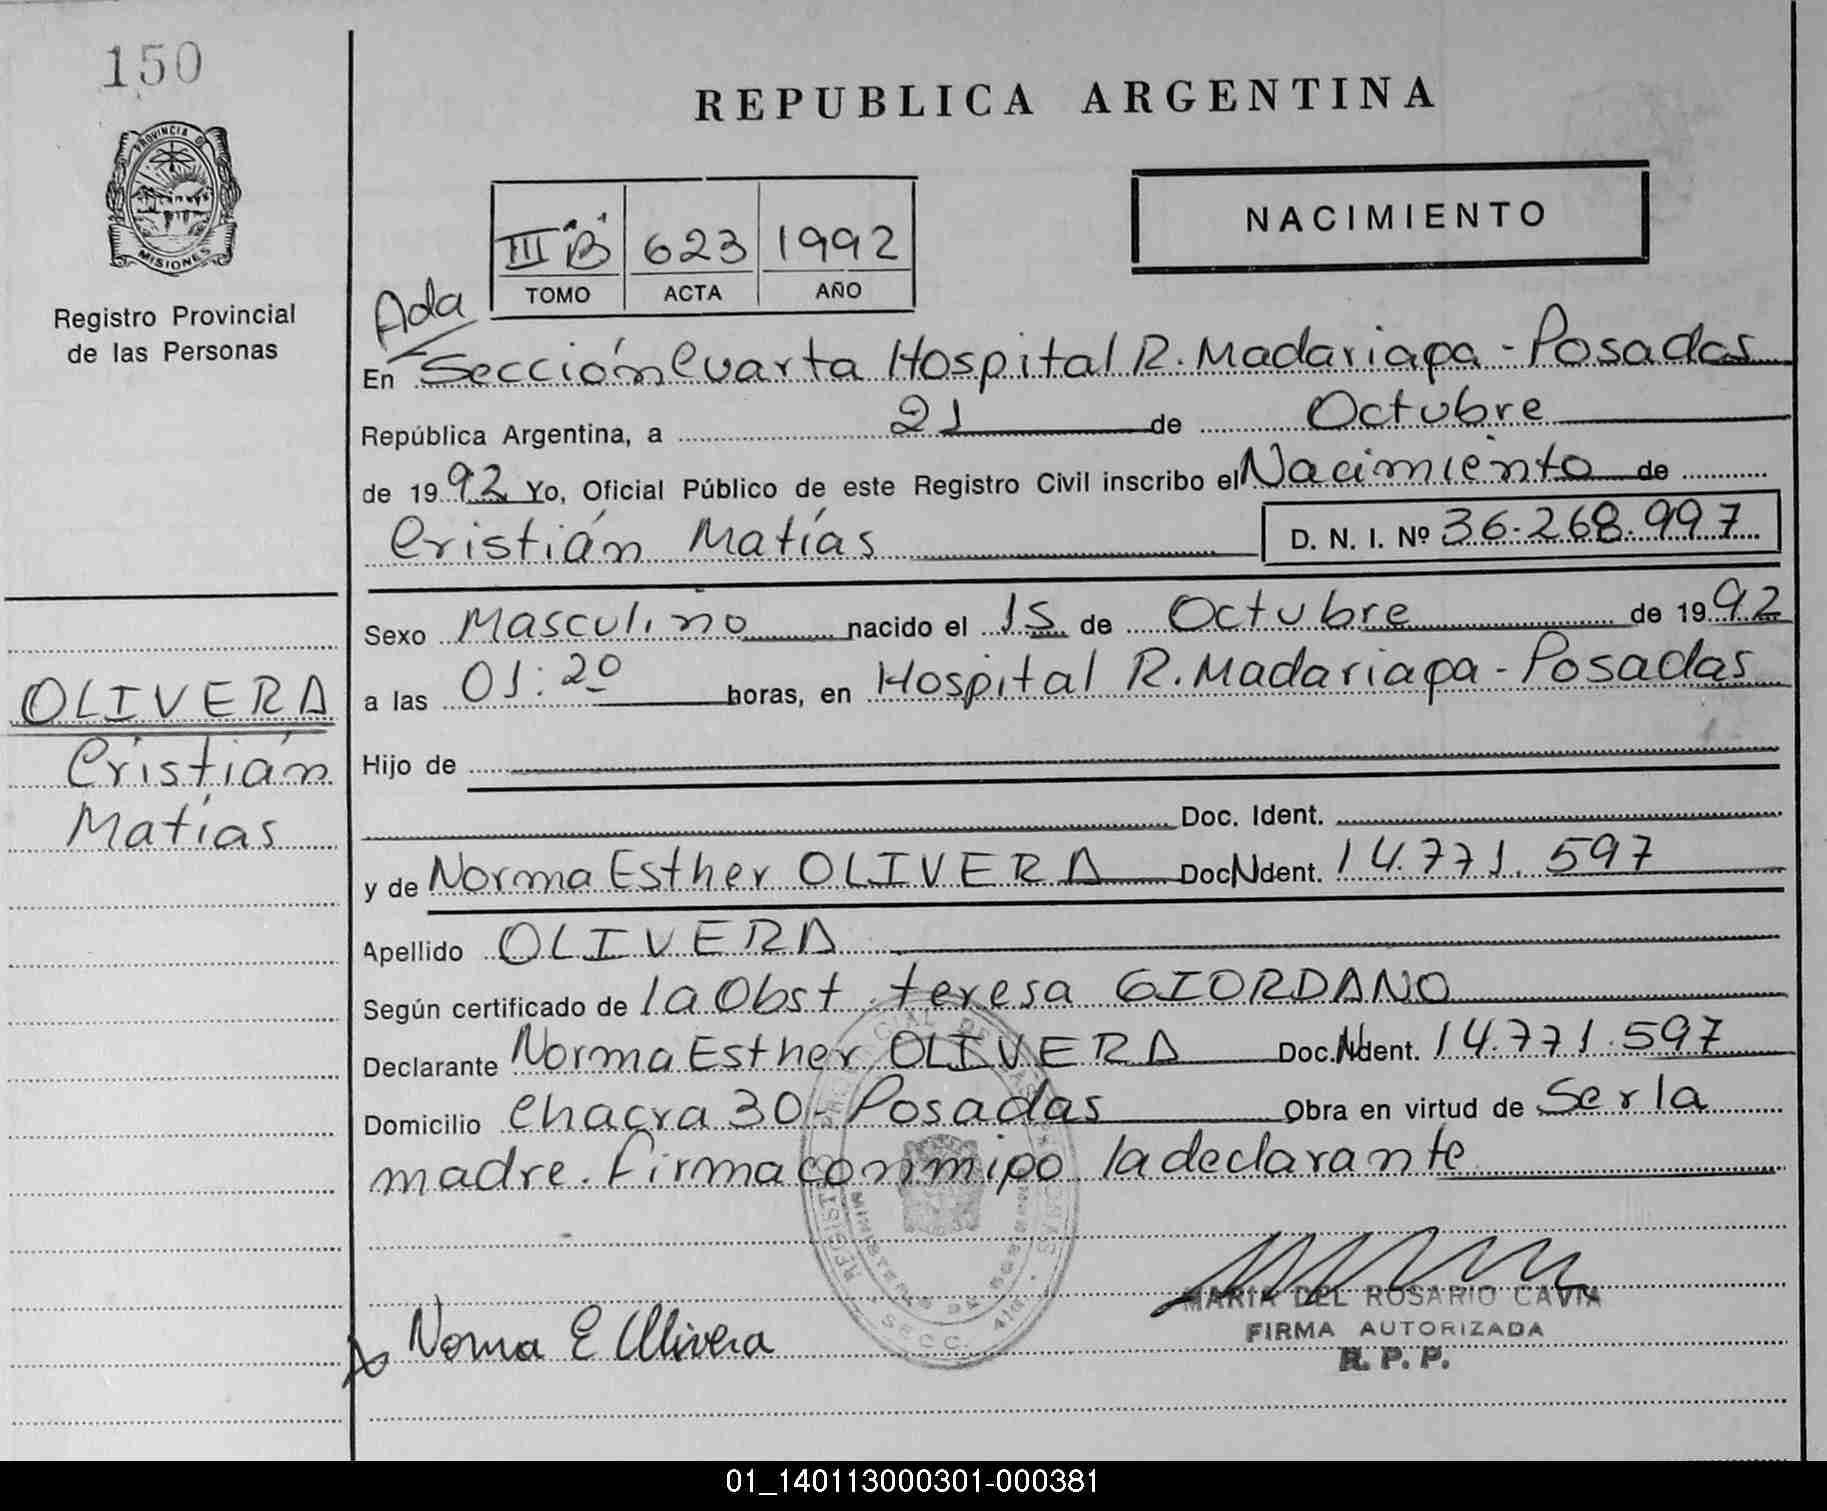 150
REPUBLICA ARGENTINA
PROVINCIA DE
MISIONES
Registro Provincial
de las Personas
NACIMIENTO
III "B" 623 1992
TOMO ACTA AÑO
Ada
En Sección Cuarta Hospital R. Madariaga - Posadas
República Argentina, a 21 de Octubre
de 1992 Yo, Oficial Público de este Registro Civil inscribo el Nacimiento de
Cristián Matías D. N. I. Nº 36.268.997
Sexo Masculino nacido el 15 de Octubre de 1992
a las 01:20 horas, en Hospital R. Madariaga - Posadas
OLIVERA
Cristián
Matías
Hijo de
Doc. Ident.
y de Norma Esther OLIVERA Doc. Ident. 14.771.597
Apellido OLIVERA
Según certificado de la Obst. teresa GIORDANO
Declarante Norma Esther OLIVERA Doc. Ident. 14.771.597
Domicilio Chacra 30 - Posadas Obra en virtud de Ser la
madre. Firma conmigo la declarante
Norma E Olivera
MARIA DEL ROSARIO CAVIA
FIRMA AUTORIZADA
R. P. P.
01_140113000301-000381